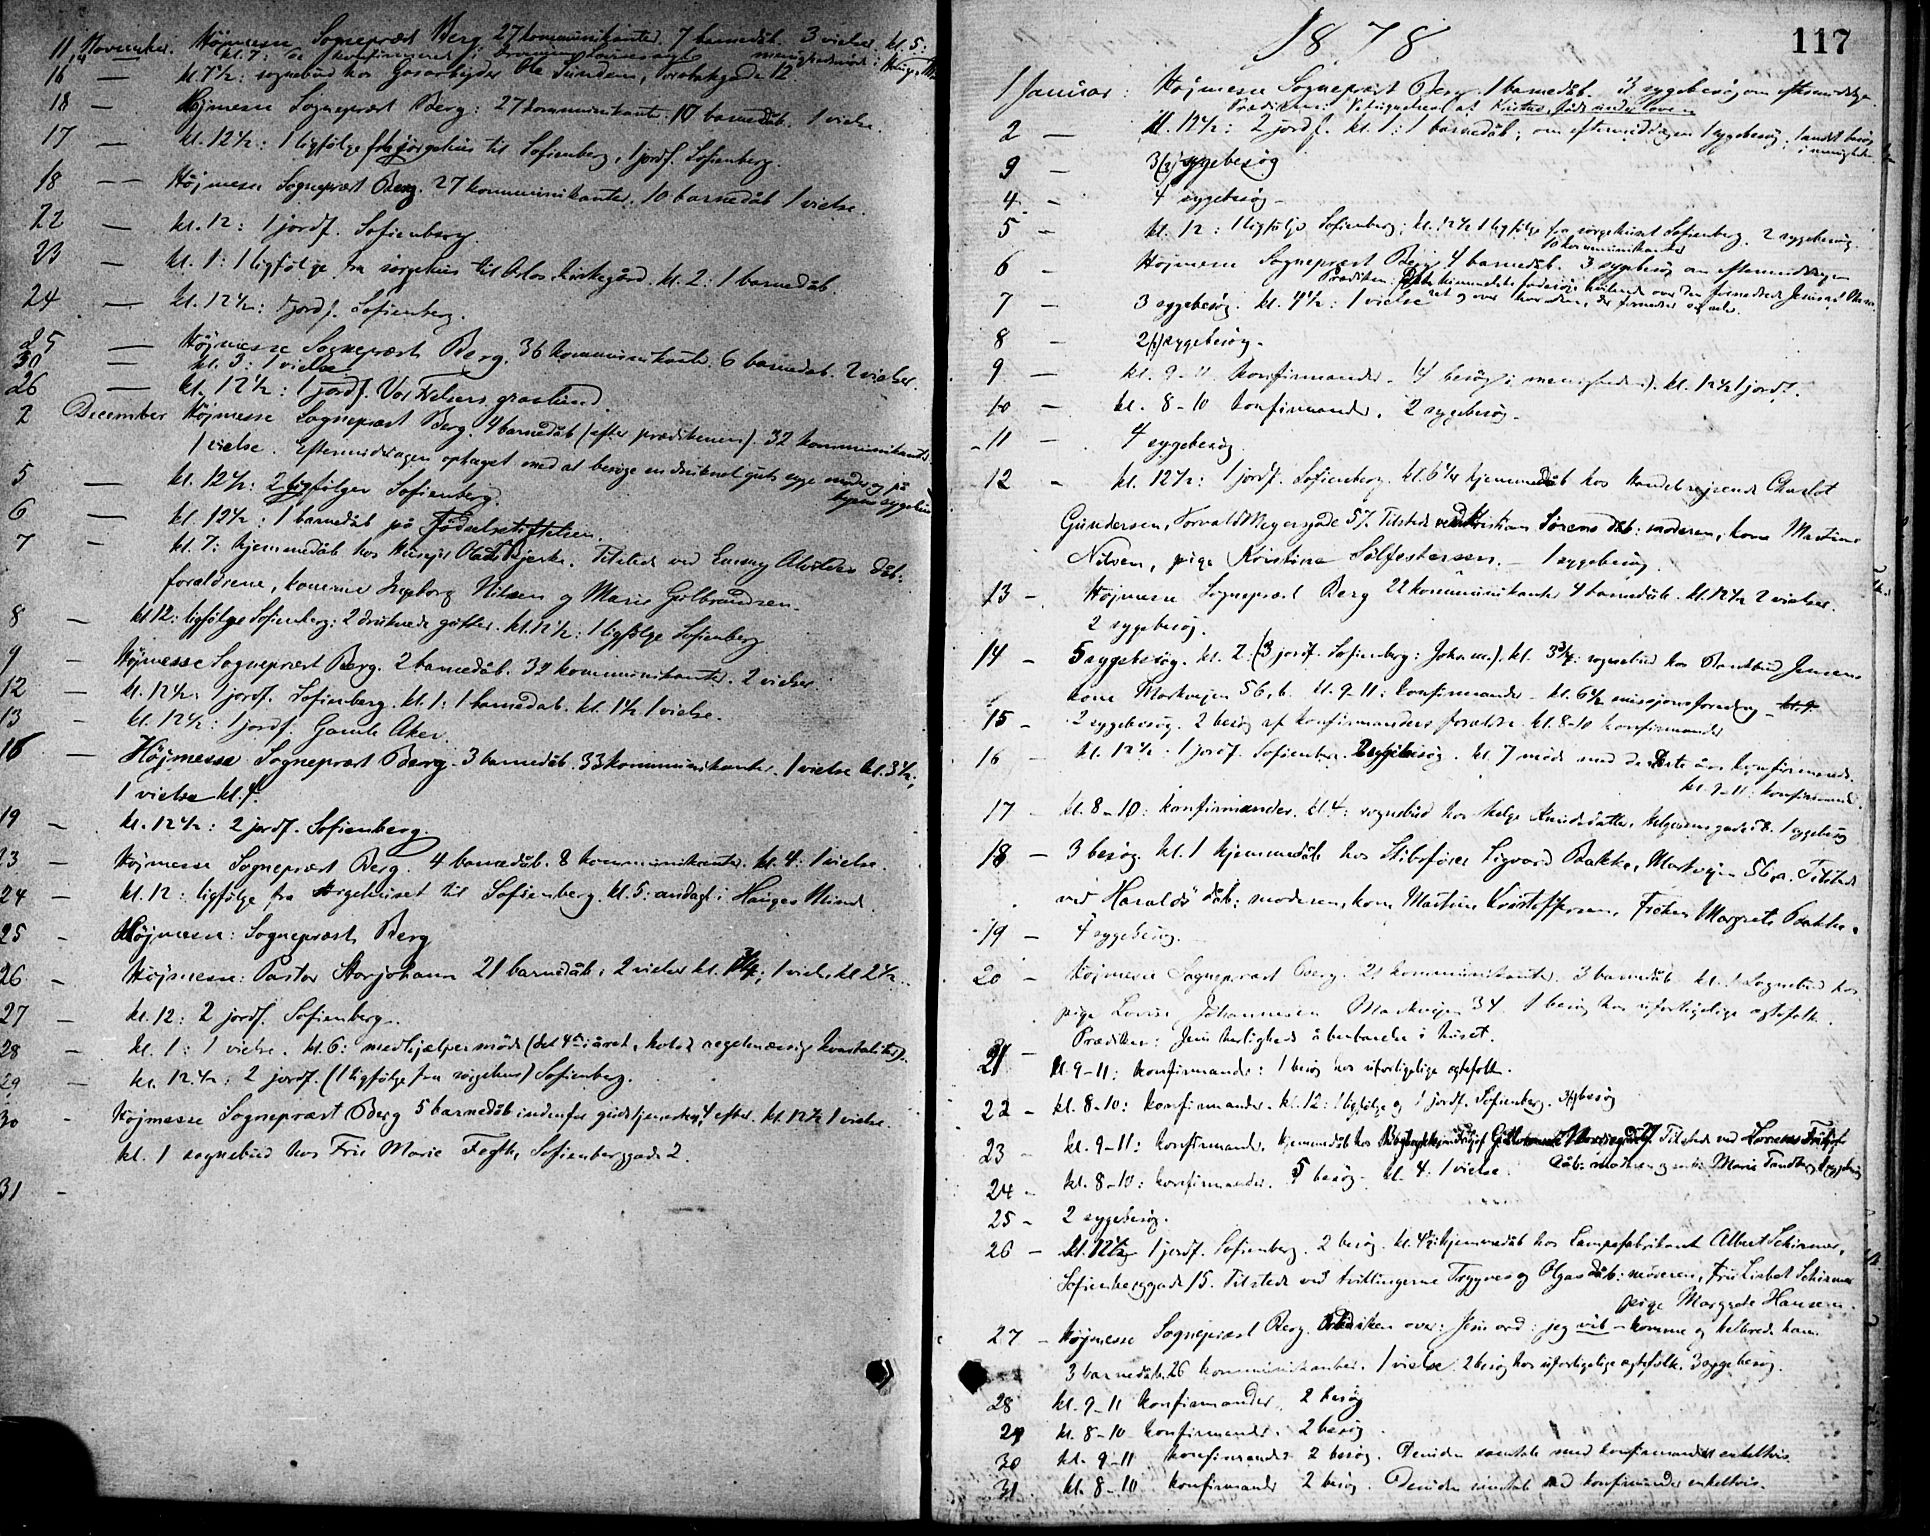 11 November. Højmesse Sognepræst Berg 27 kommunikanter. 7 barnedåb. 3 vielser. kl. 5:
16 — kl. 7½: sognebud hos Gasarbejder Ole Sundem, Torvbakgade 12.
18 — Højmesse Sognepræst Berg: 27 kommunikanter. 10 barnedåb 1 vielse.
17 — kl. 12½: 1 ligfölge fra sörgehus til Sofienberg, 1 jordf. Sofienberg.
18 — Højmesse Sognepræst Berg. 27 kommunikanter. 10 barnedåb 1 vielse.
22 — kl. 12: 1 jordf. Sofienberg.
23 — kl. 1: 1 ligfölge fra sörgehus til Oslo kirkegård. kl. 2: 1 barnedåb.
24 — kl. 12½: 1 jordf. Sofienberg.
25 — Højmesse Sognepræst Berg. 36 kommunikanter. 6 barnedåb. 2 vielser.
30 — kl. 3: 1 vielse
26 — kl. 12½: 1 jordf. Vor Frelsers gravlund.
2 December Højmesse Sognepræst Berg. 4 barnedåb (efter prædikenen). 32 kommunikanter.
1 vielse. Eftermiddagen optaget med at besøge en druknet guts syge moder og på
5 — kl. 12½: 2 ligfölger Sofienberg.
6 — kl. 12½: 1 barnedåb på Fødselsstiftelsen.
7 — kl. 7: hjemmedåb hos Tilstede ved Emmy Alvildes dåb:
forældrene, konerne Ingeborg Nilsen og Marie Gulbrandsen.
8 — kl 12: ligfölge Sofienberg: 2 druknede gutter. kl. 12½: 1 ligfölge Sofienberg
9 — Højmesse Sognepræst Berg. 2 barnedåb. 32 kommunikanter. 2 vielser.
12 — kl. 12½: 1 jordf. Sofienberg. kl. 1: 1 barnedåb. kl. 1½ 1 vielse.
13 — kl. 12½: 1 jordf. Gamle Aker.
16 — Højmesse Sognepræst Berg. 3 barnedåb. 33 kommunikanter. 1 vielse kl. 3½,
1 vielse kl. 4.
19 — kl. 12½: 2 jordf. Sofienberg.
23 — Højmesse Sognepræst Berg. 4 barnedåb. 8 kommunikanter. kl. 4: 1 vielse.
24 — kl. 12: ligfölge fra sörgehuset til Sofienberg. kl. 5: andagt i Hauges Minde
25 — Højmesse: Sognepræst Berg
26 — Højmesse: Pastor Storjohann 21 barnedåb; 2 vielser kl. 1¾; 1 vielse kl 2½.
27 — kl. 12: 2 jordf. Sofienberg.
28 — kl. 1: 1 vielse. kl. 6: medhjælpermöde (det 4de i året, holdt regelmæssig kvartaliter).
29 — kl. 12½: 2 jordf. (1 ligfölge fra sörgehus) Sofienberg.
30 - Højmesse Sognepræst Berg 5 barnedåb indenfor gudstjenesten, 4 efter. kl. 12½ 1 vielse.
kl. 1 sognebud hos Fru Marie Fegth, Sofienberggade 2.
31 -
1878
117
1 Januar: Højmesse Sognepræst Berg. 1 barnedåb. 3 sygebesög om eftermiddagen
Prædiken: Velsignelsen at Kristus født under loven
2 — kl. 12½: 2 jordf. kl. 1: 1 barnedåb; om eftermiddagen 1 sygebesög, 1 andet besög
i menigheden
3 — 3 sygebesög
4. - 4 sygebesög
5 — kl. 12: 1 ligfölge Sofienberg; kl. 12½ 1 ligfölge fra sörgehuset Sofienberg. 2 sygebesög
10 kommunikanter
6 — Højmesse Sognepræst Berg 4 barnedåb. 3 sygebesög om eftermiddagen
7 — 3 sygebesög. kl. 4½: 1 vielse
8 — 2 sygebesög.
9 — kl. 9-11 konfirmander. 4 besög i menigheden. kl. 12½ 1 jordf.
10 — kl. 8-10 konfirmander. 2 sygebesög.
11 — 4 sygebesög
12 - kl. 12½: 1 jordf. Sofienberg. kl. 6¼ hjemmedåb hos Handelsrejsende Charlot
Gundersen, Torvald Meyersgade 57. Tilstede ved Kristian Sörens dåb: moderen, kone Martine
Nilsen, pige Kristine Sølfestersen. — 1 sygebesög.
13 - Højmesse Sognepræst Berg 22 kommunikanter 4 barnedåb. kl. 12½ 2 vielser.
2 sygebesög.
14 - 5 sygebesög. kl. 2. (3 jordf. Sofienberg: Joh.m.). kl. 3¾: sognebud hos Jensens
kone Markvejen 56, b. kl. 9-11: konfirmander - kl. 6½ missjonsforedrag
15 - 2 sygebesög. 2 besög af konfirmanders forældre. kl. 8-10 konfirmander
16 - kl. 12½. 1 jordf. Sofienberg. 2 sygebesög. kl. 7 möde med de første års konfirmerede.
kl. 9-11: konfirmand.
17 - kl. 8-10: konfirmander. kl. 4: sognebud hos Helge Knudsdatter, Helgesensgade 58. 1 sygebesög
18 — 3 besög. kl. 1 hjemmedåb hos Skibsförer Sigvard Bakke, Markvejen 56, a. Tilstede
ved Haralds dåb: moderen, kone Martine Kristoffersen, Frøken Margrete Bakke.
19 — 4 sygebesög.
20 - Højmesse Sognepræst Berg. 21 kommunikanter. 3 barnedåb. kl. 1 Sognebud hos
pige Lovise Johannesen Markvejen 34. 1 besög hos uforligelige ægtefolk.
Prædiken: Jesu herligheds åbenbarelse i huset.
21 — kl. 9-11: konfirmander: 1 besög hos uforligelige ægtefolk.
22 - kl. 8-10: konfirmander. kl. 12: 1 ligfölge og 1 jordf. Sofienberg. 3 besög
23 - kl. 9-11: konfirmander, hjemmedåb hos Tilstede ved
dåb: moderen Marie Tandberg. 1 sygebesög
24 - kl. 8-10: konfirmander. 5 besög. kl. 4. 1 vielse.
25 - 2 sygebesög.
26 - kl. 12½ 1 jordf. Sofienberg. 2 besög. kl. 4½: hjemmedåb hos Lampefabrikant Albert Schirmer,
Sofienberggade 15. Tilstede ved tvillingerne Trygves og Olgas dåb: moderen, Fru Lisbet Schirmer
pige Margrete Hansen.
27 - Højmesse Sognepræst Berg. Prædiken over: Jesu ord: jeg vil komme og helbrede ham
3 barnedåb. 26 kommunikanter. 1 vielse. 2 besög hos uforligelige ægtefolk. 3 sygebesög.
28 kl. 9-11 konfirmander, 2 besög
29 kl. 8-10 konfirmander. 2 besög
30 kl. 9-11 konfirmander 2 besög. Desuden samtale med konfirmander enkeltvis
31. kl. 8-10 konfirmander 2 besög. Desuden samtale med konfirmander enkeltvis.